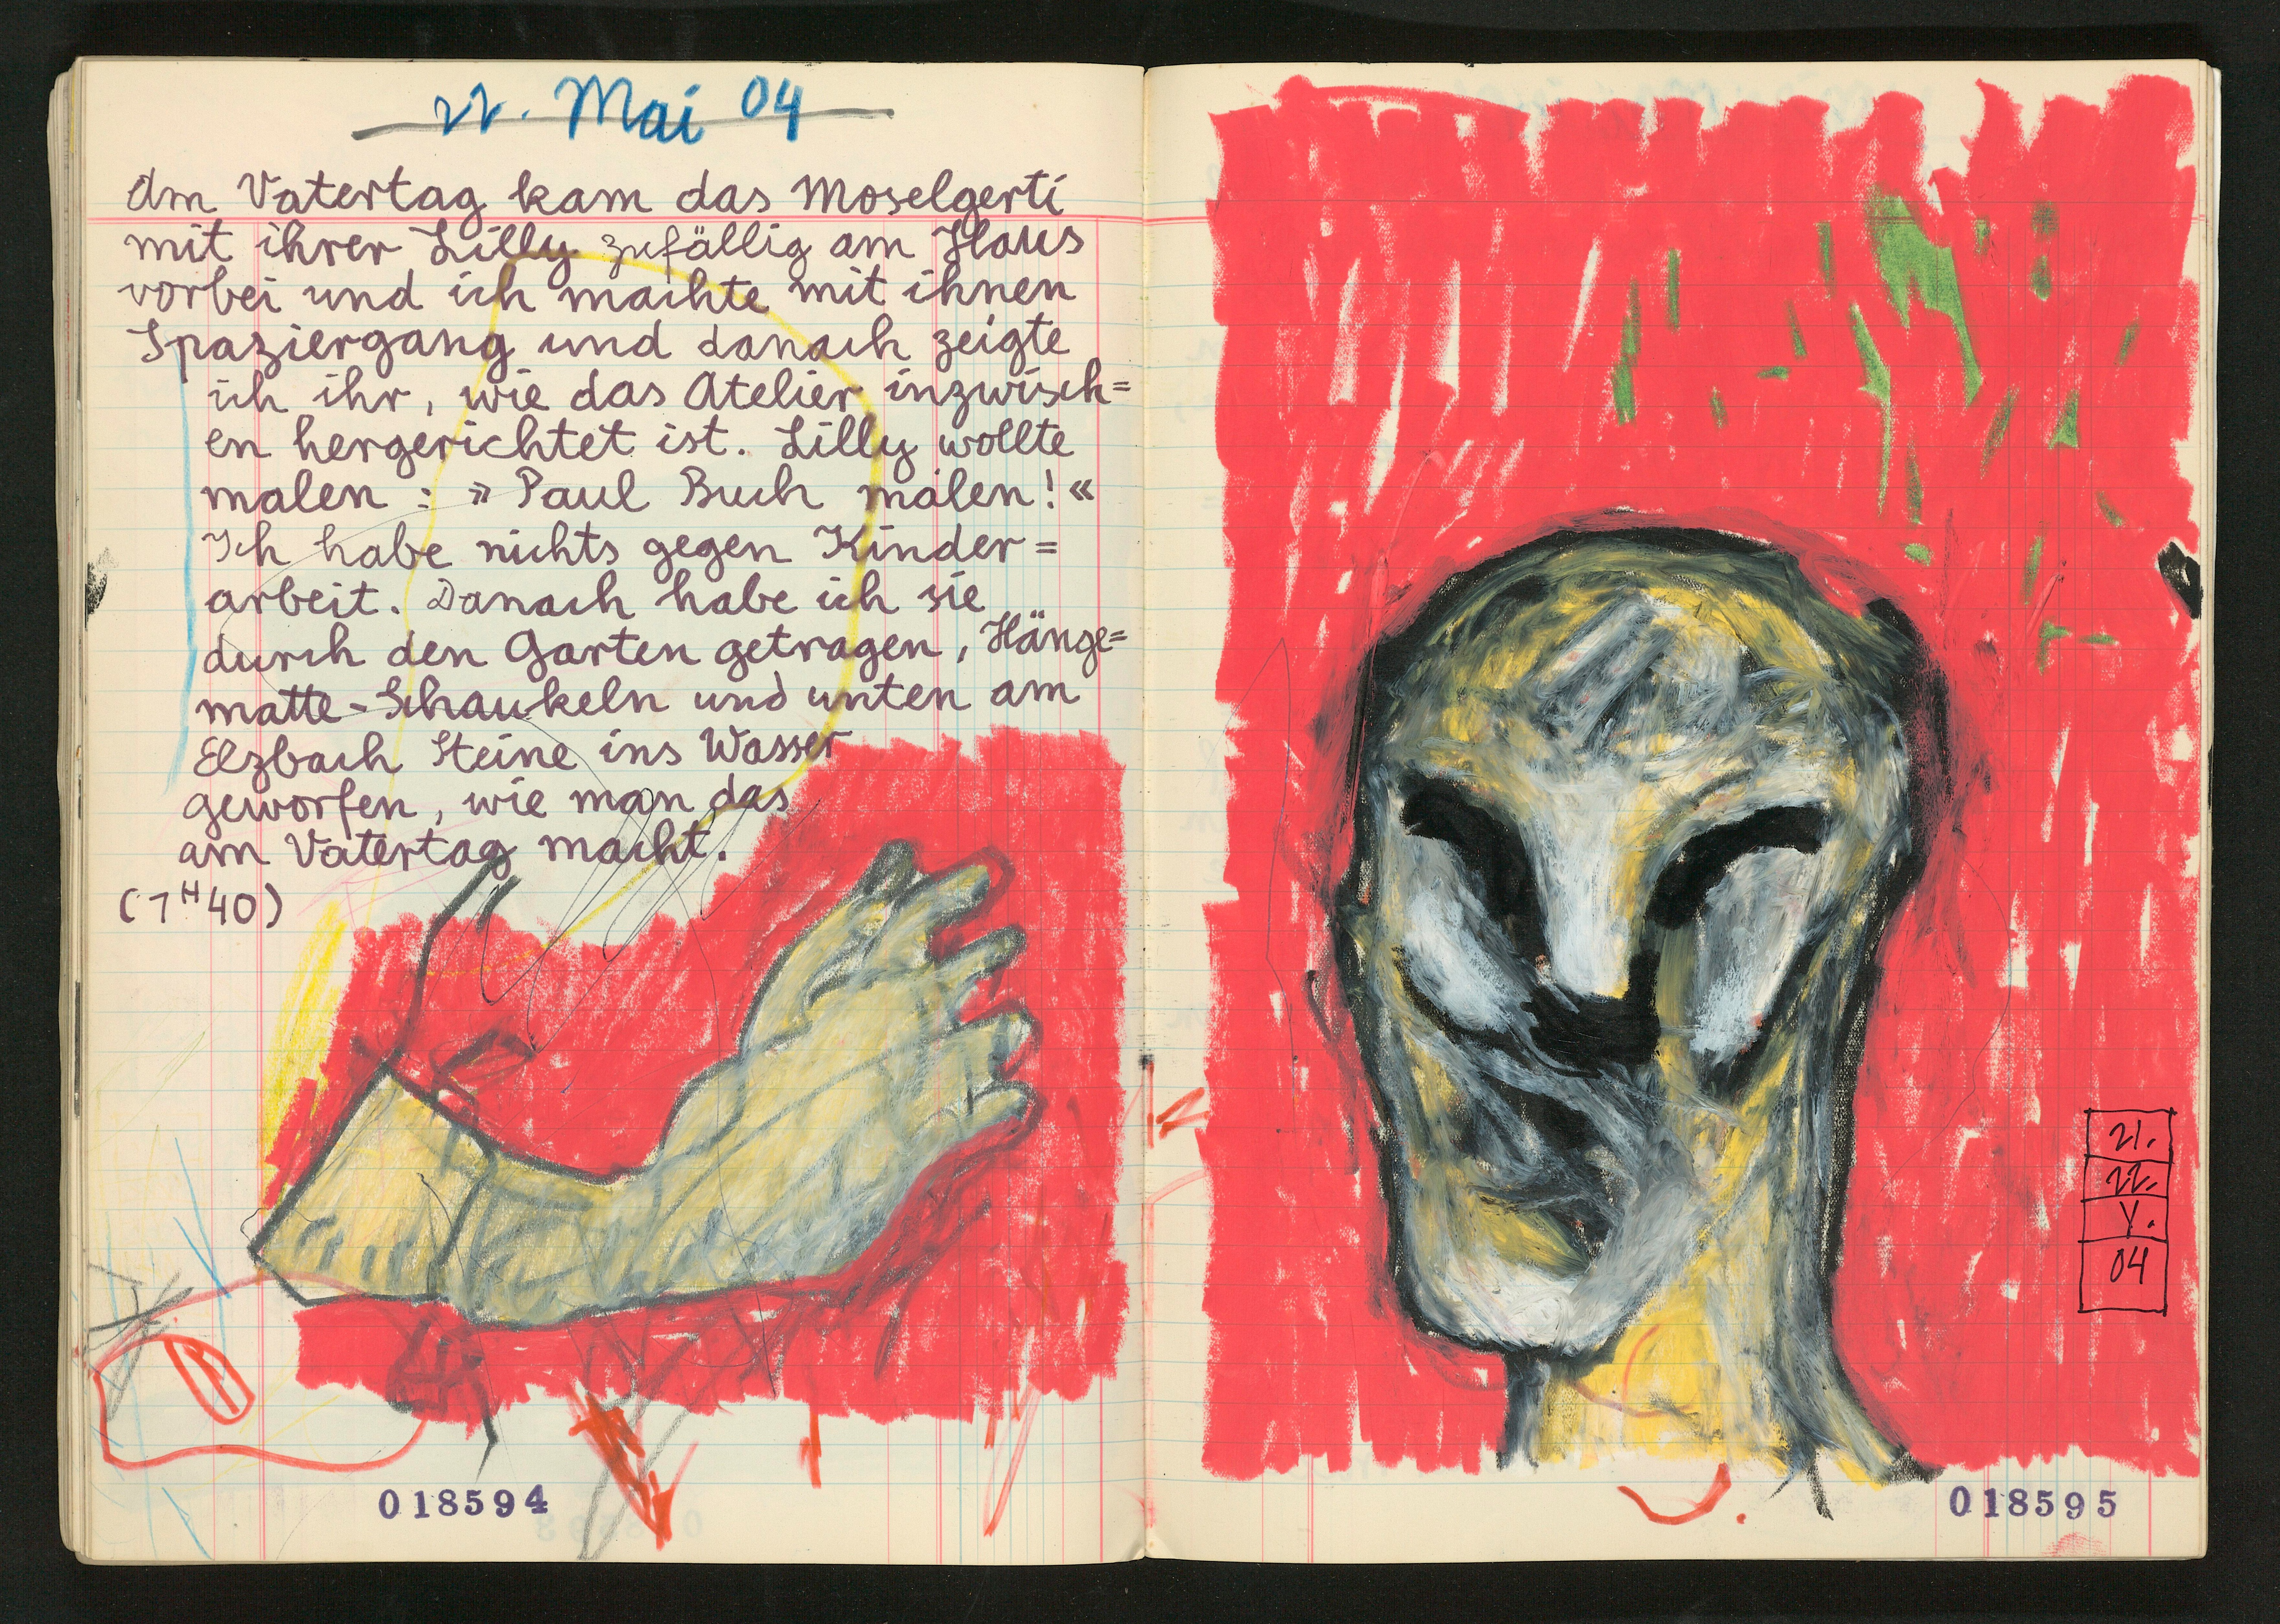 22. Mai 04
Am Vatertag kam das Moselgerti
mit ihrer Lilly zufällig am Haus
vorbei und ich machte mit ihnen
Spaziergang und danach zeigte
ich ihr, wie das Atelier inzwisch=
en hergerichtet ist. Lilly wollte
malen : » Paul Buch malen! «
Ich habe nichts gegen Kinder=
arbeit. Danach habe ich sie
durch den Garten getragen, Hänge=
matte-Schaukeln und unten am
Elzbach Steine ins Wasser
geworfen, wie man das
am Vatertag macht.
(1H40)
018594
21.
22.
V.
04
018595